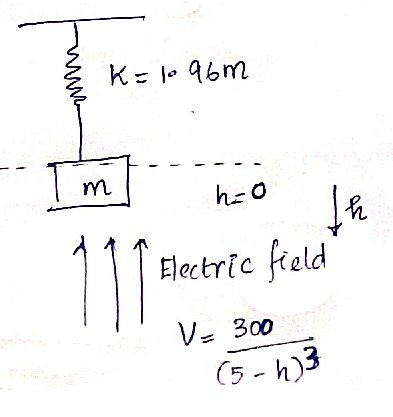 K = 1.96m
m
h=0
h
Electric field
V = 300
(5-h)3